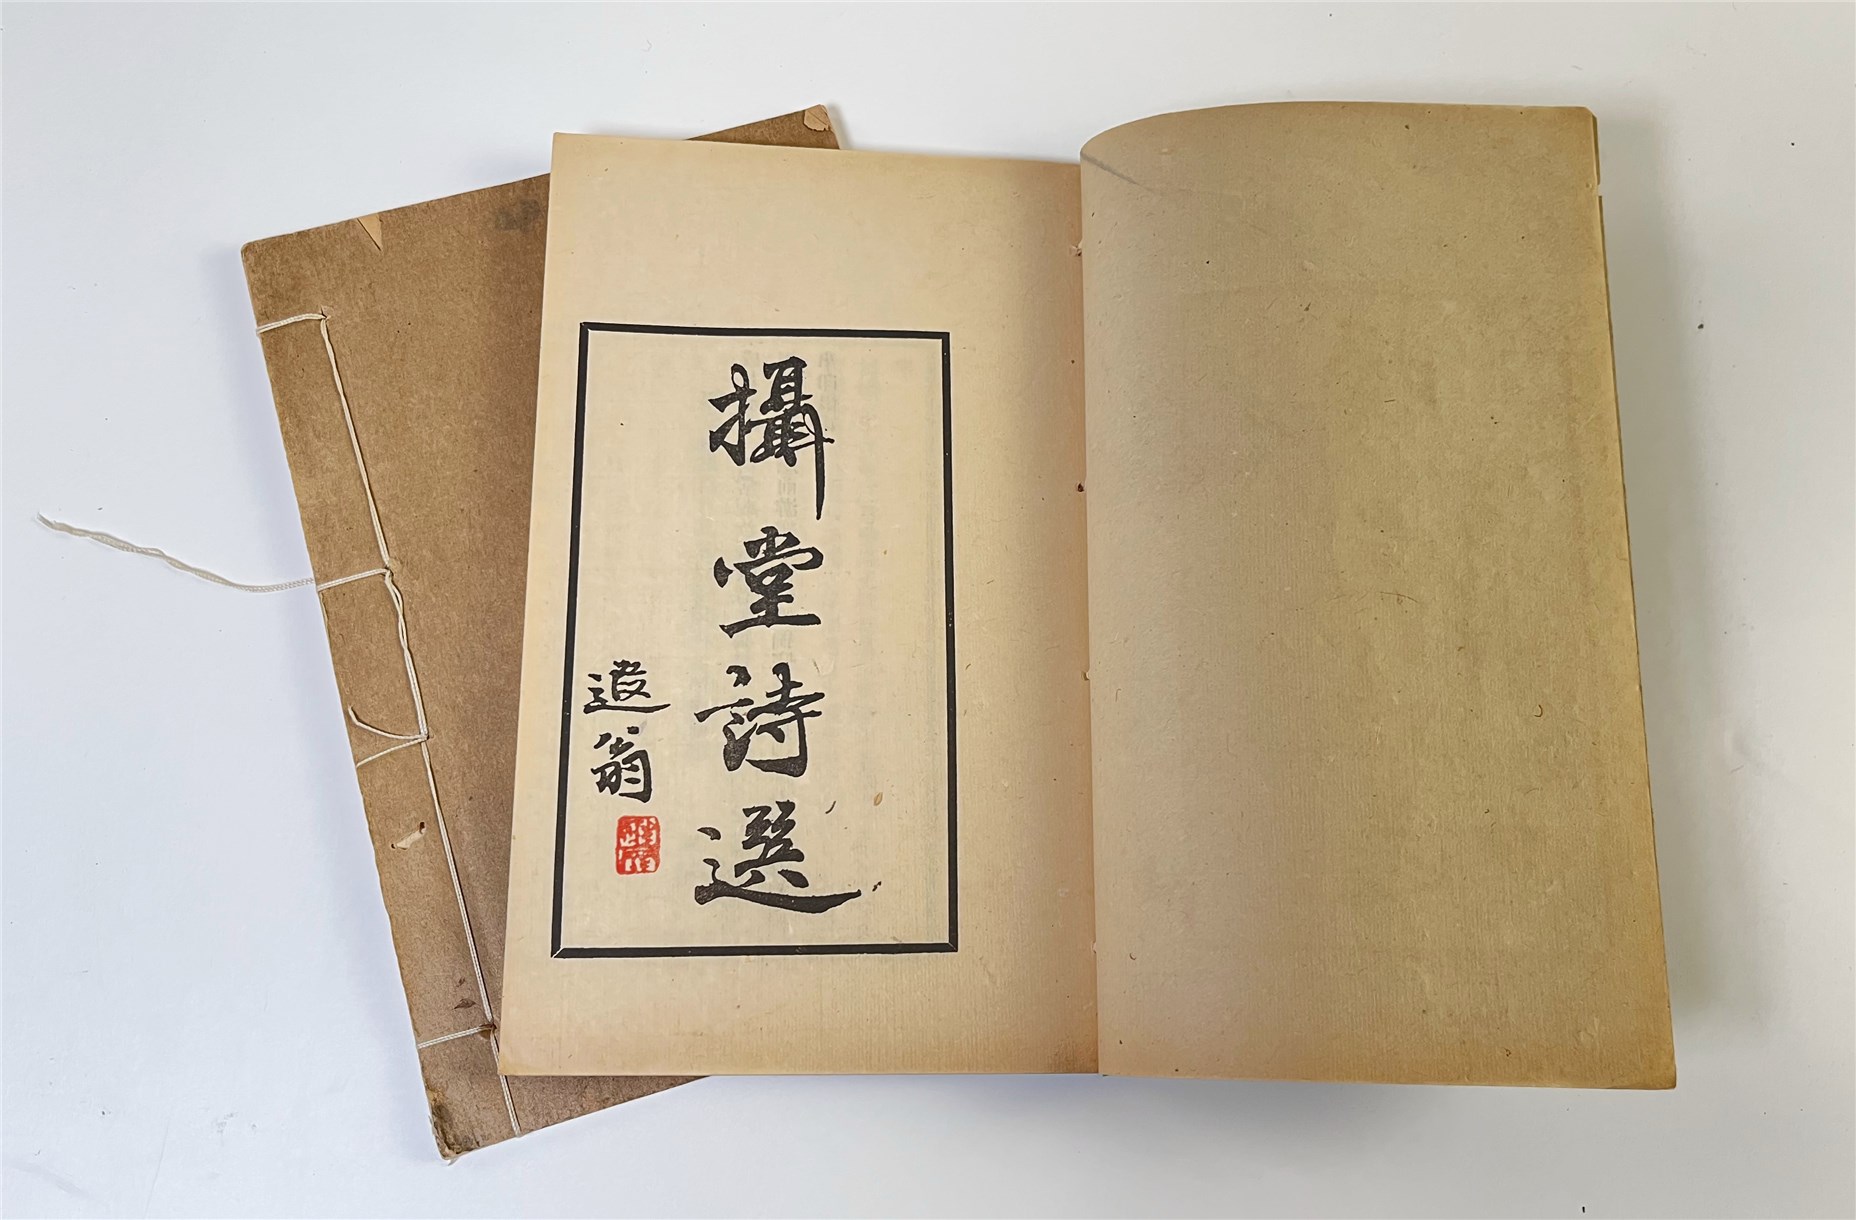 攝堂詩選
遐翁